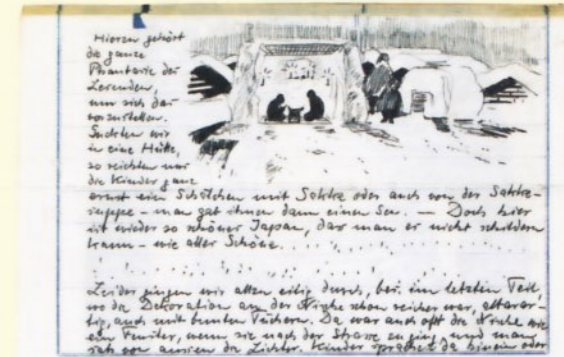 Hierzu gehört
die ganze
Phantasie des
Lesenden,
um sich das
vorzustellen.
in eine Hütte,
so reichten uns
die Kinder ganz
ernst ein Schälchen mit Sakke oder auch von der Sakke-
suppe – man gab ihnen dann einen Sen. — Doch hier
ist wieder so schönes Japan, das man es nicht schildern
kann – wie alles Schöne.
Leider gingen wir allzu eilig durch, bes. im letzten Teil,
wo die Dekoration an der Nische schon reicher war, altarar-
tig, auch mit bunten Tüchern. Da war auch oft die Nische wie
ein Fenster, wenn sie nach der Strasse zu ging, und man
sah von aussen die Lichter. Kinder da hinein oder